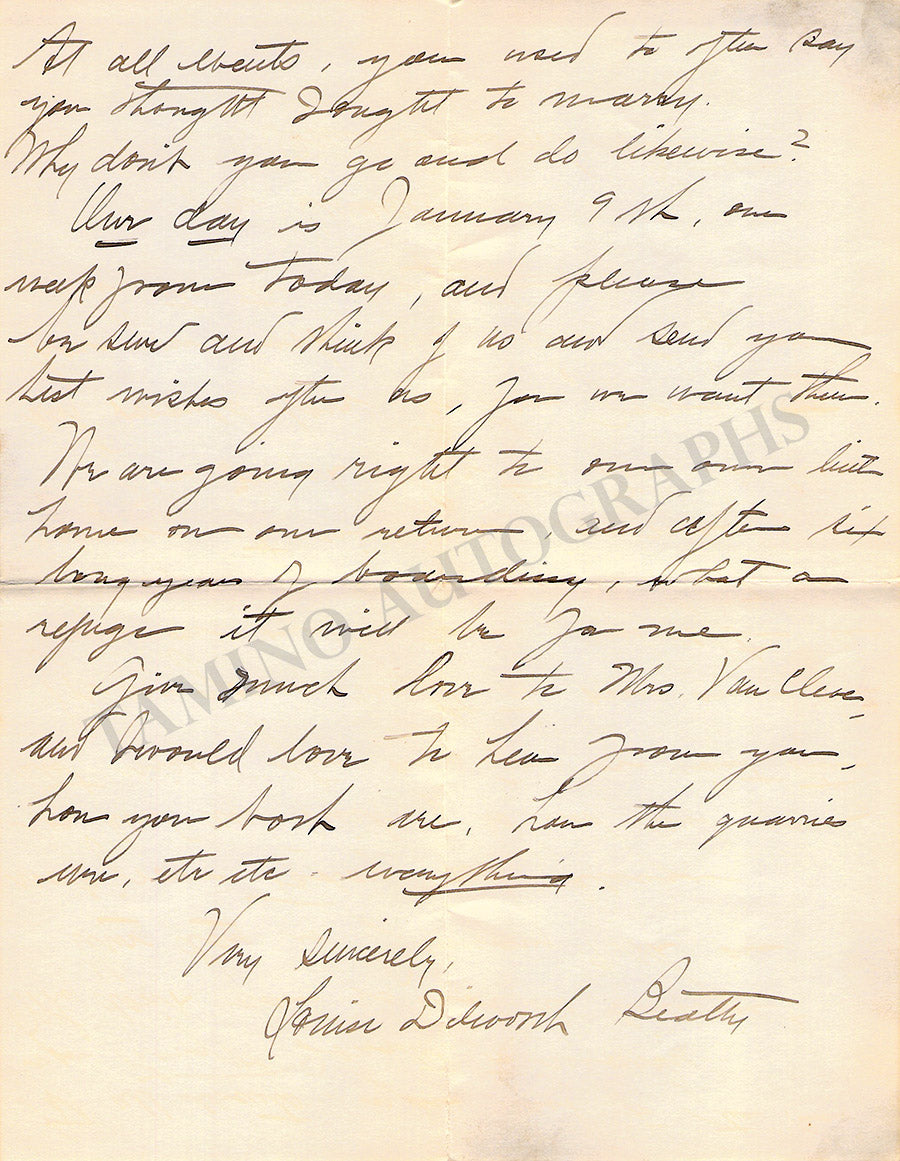 At all events, you used to often say
you thought I ought to marry.
Why don't you go and do likewise?
Our day is January 9th, one
week from today, and please
be sure and think of us and send your
best wishes after us, for we want them.
We are going right to our own little
home on our return, and after six
long years of boarding, what a
refuge it will be for me.
Give much love to Mrs. Van Cleve,
and I would love to hear from you,
how you both are, how the quarries
were, etc etc - everything.
Very sincerely,
Louise Dilworth Beatty
TAMINO AUTOGRAPHS